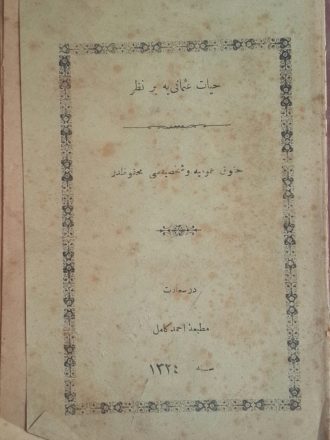 حیات عثمانی یه بر نظر
حقوق عمومیه و شخصیه‌سی محفوظدر
در سعادت
مطبعهٔ احمد كامل
سنه ١٣٢٤